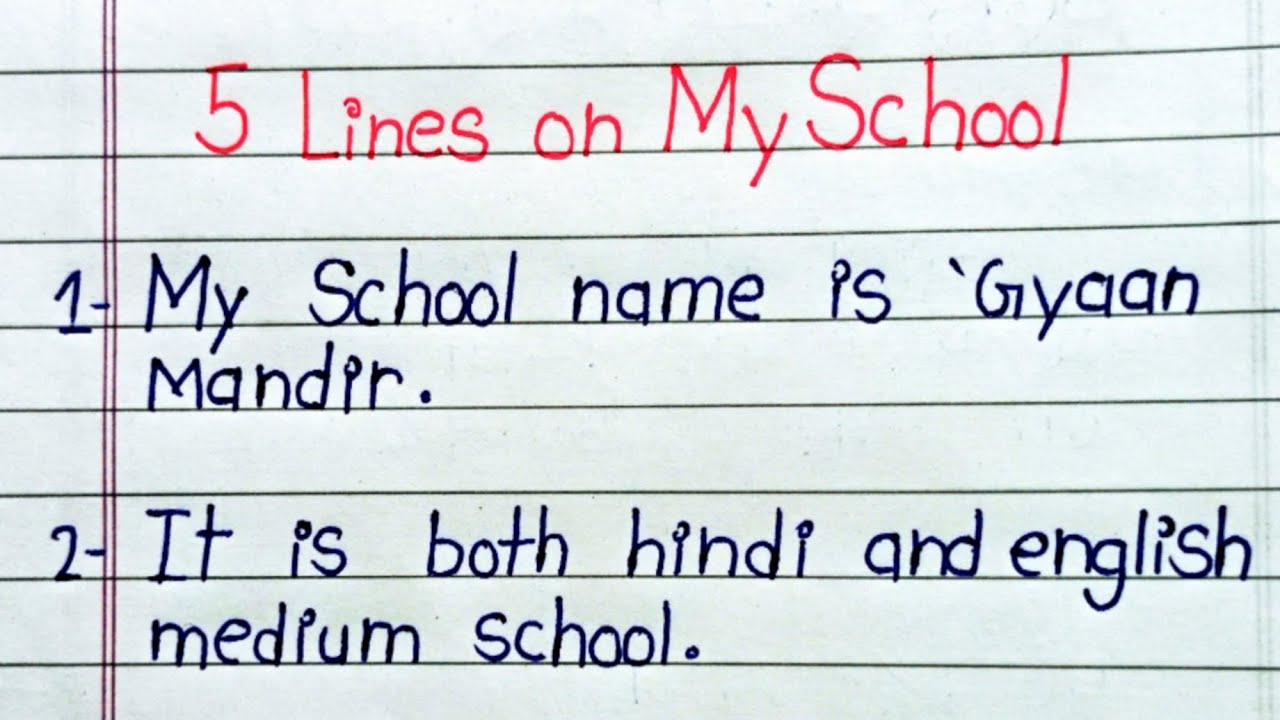 5 Lines on My School
1- My School name is `Gyaan
Mandir.
2- It is both hindi and english
medium school.